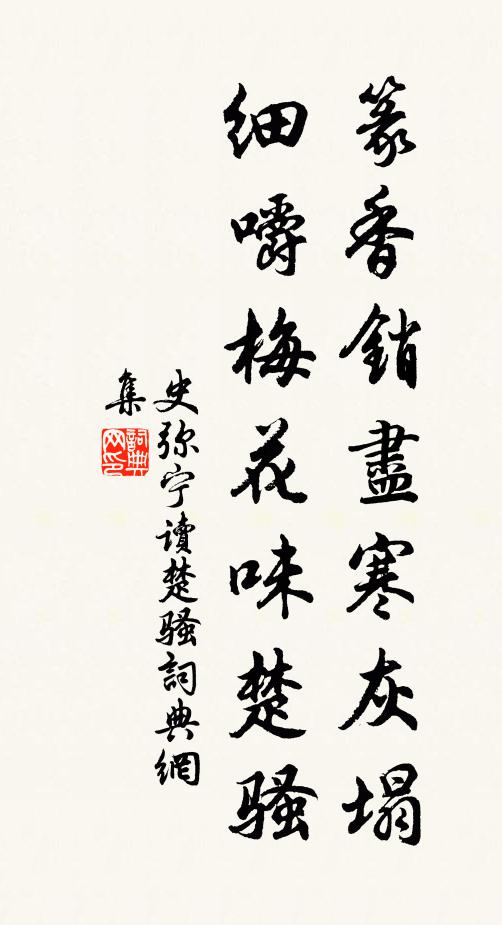 篆香銷盡寒灰塌
细嚼梅花味楚骚
史弥宁读楚骚詞典網
集
詞典
网印